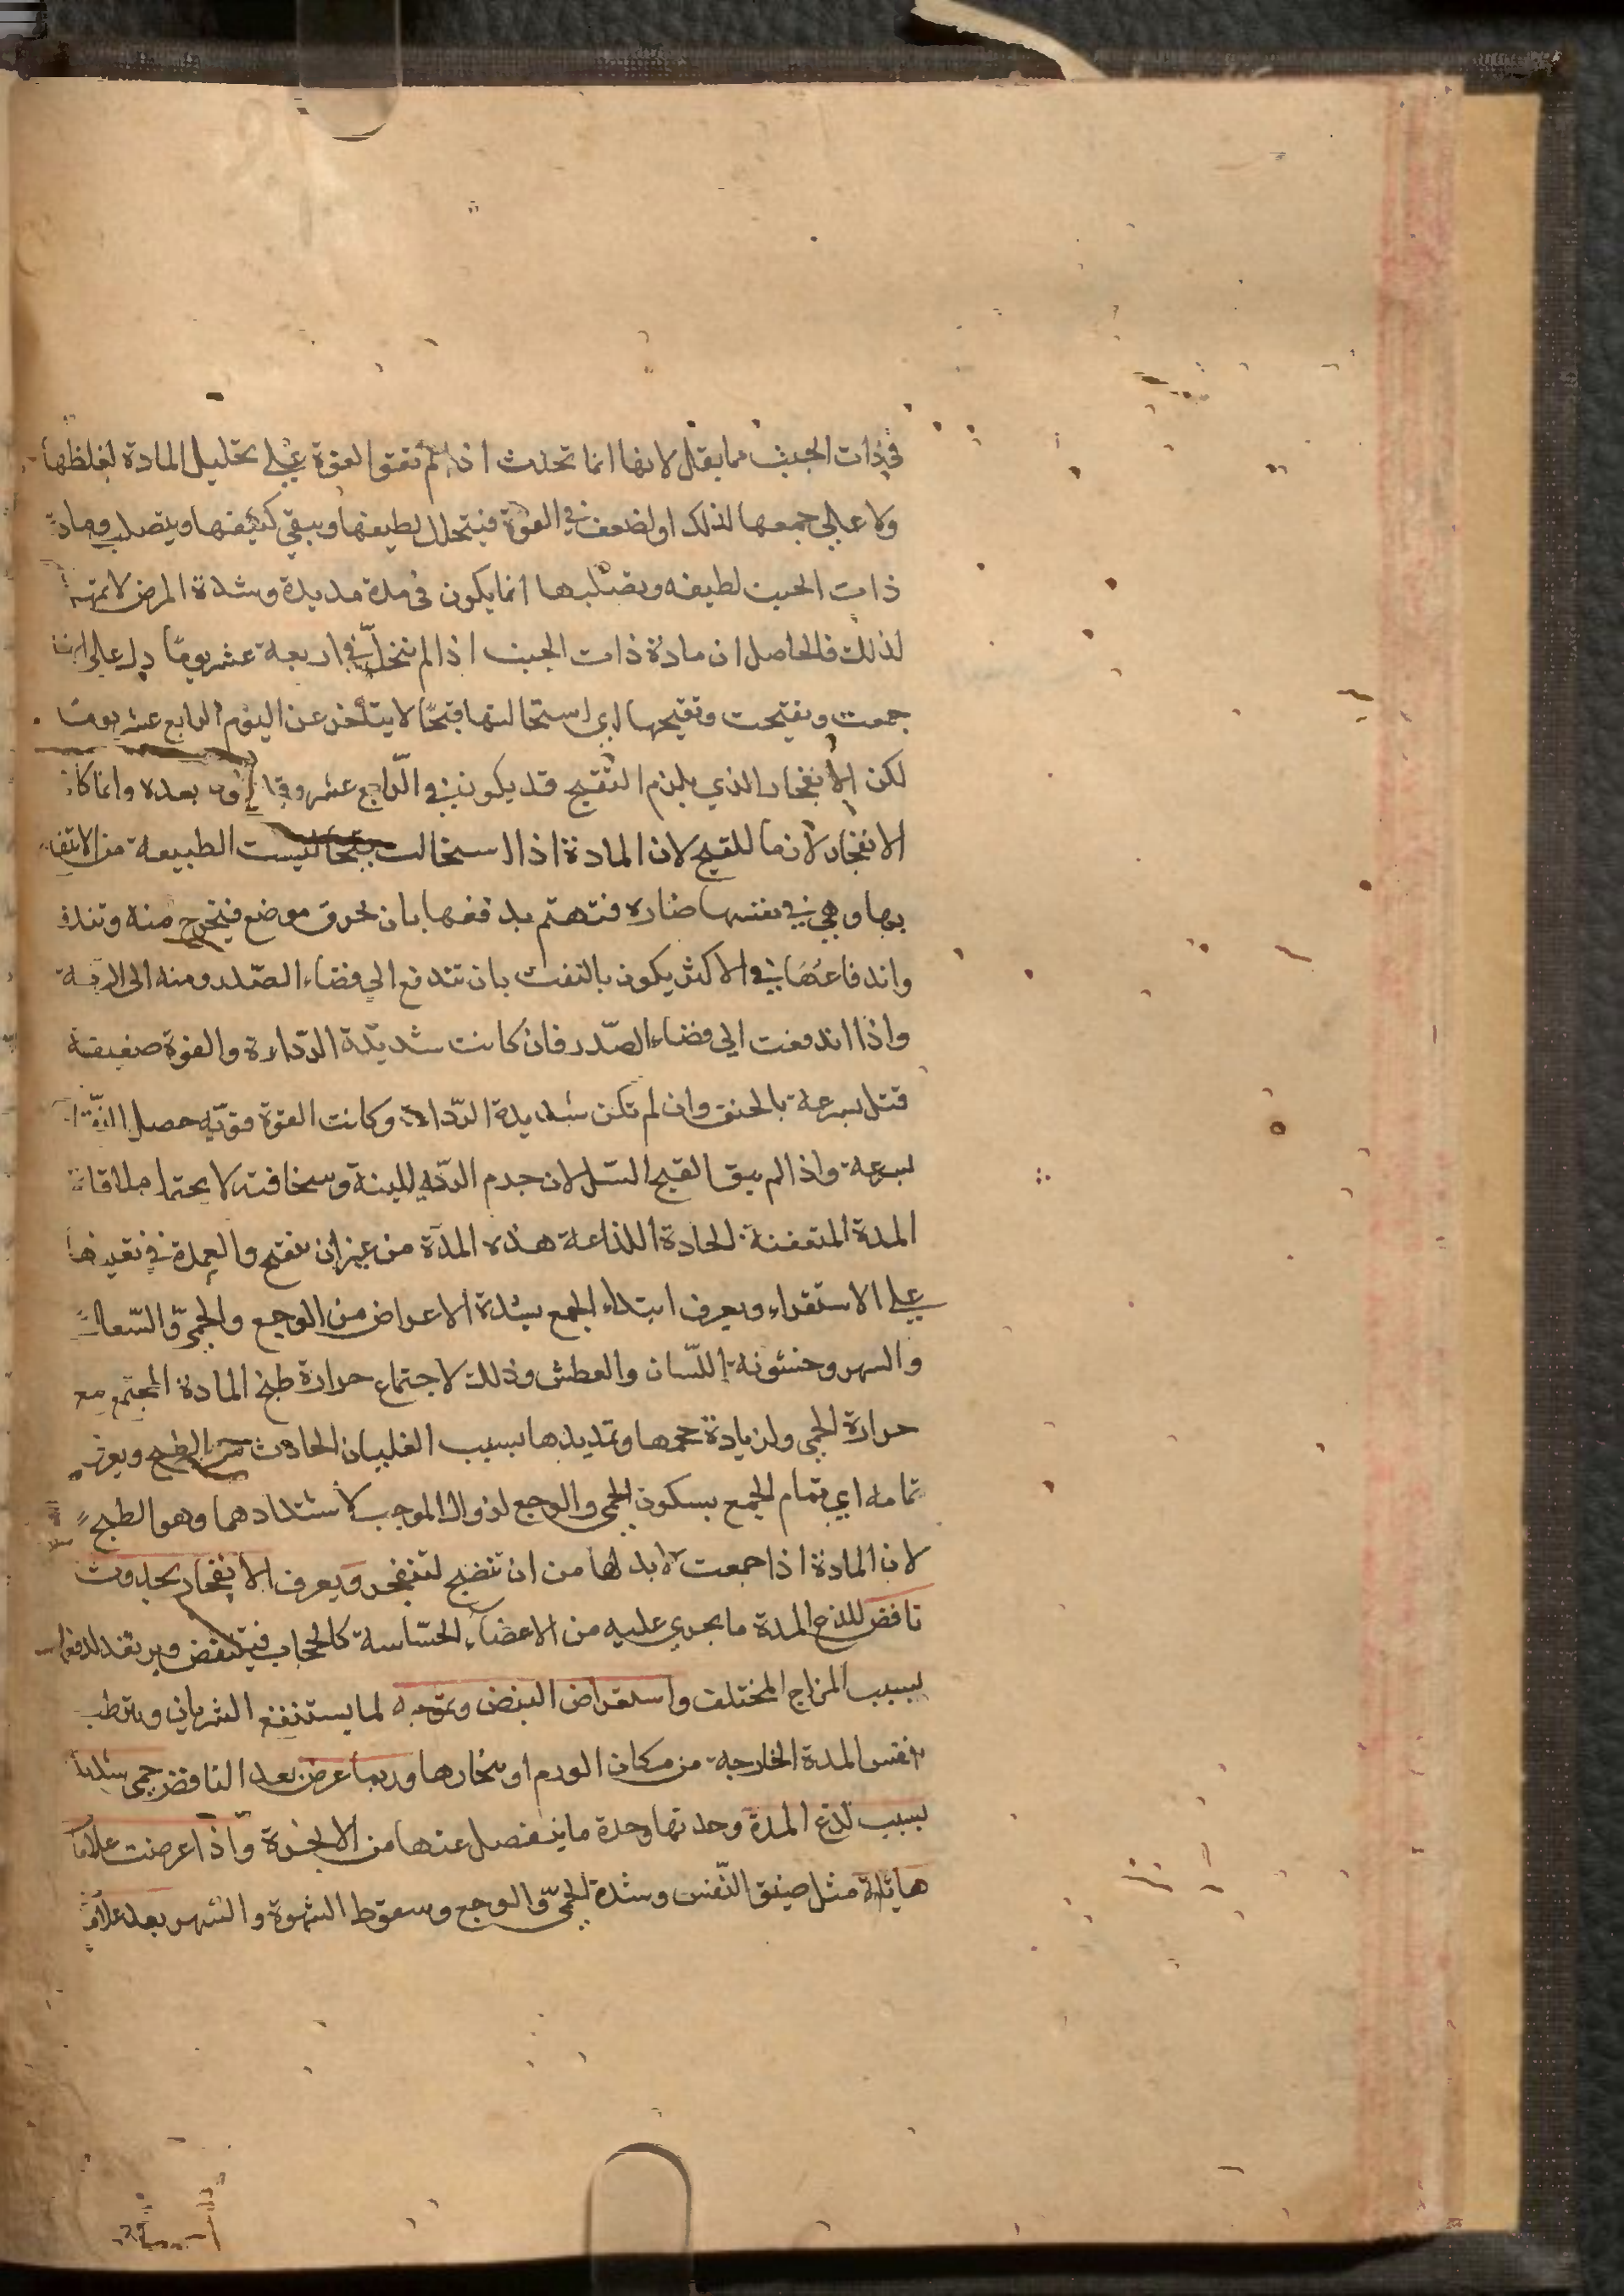 في ذات الجنب مما يقل لانها انما تحدث اذا لم تقو القوة على تحليل المادة لغلظها
ولا على جمعها لذلك او لضعف في القوة فيتحلل لطيفها ويبقى كثيفها ويتصلب ومادة
ذات الجنب لطيفه وتصلبها انما يكون في مدة مديدة وشدة المرض لا تمهله
لذلك فالحاصل ان مادة ذات الجنب اذا لم تنحل في اربعة عشر يوما دل على انها
جمعت وتقيحت وتقيحها اي استحالتها قيحا لا يتأخر عن اليوم الرابع عشر يوما
لكن الانفجار الذي يلزم التقيح قد يكون في الرابع عشر وقد يكون بعده وانما كان
الانفجار لازما للقيح لان المادة اذا استحالت قيحا ليست الطبيعة من الانتفاع
بها وهي في نفسها ضاره فتهتم بدفعها بان تخرق موضع فيتخرج منه وتندفع
واندفاعها في الاكثر يكون بالنفث بان تندفع الي فضاء الصدر ومنه الى الرية
واذا اندفعت الي فضاء الصدر فان كانت شديدة الرداءة والقوة ضعيفة
قتل بسرعة بالخنق وان لم تكن شديدة الرداءة وكانت القوة قوية حصل
بسرعة واذا لم ينق القيح السل لان جرم الرية للينة وسخافته لا يحتمل ملاقاة
المدة المتعفنة الحادة اللذاعة هذه المدة من غير ان يتقيح والعمدة في تقديرها
على الاستقراء ويعرف ابتداء الجمع بشدة الاعراض من الوجع والحمى والسعال
والسهر وخشونة اللسان والعطش وذلك لاجتماع حرارة طبخ المادة المجتمع مع
حرارة الحمى ولزيادة حجمها وتمديدها بسبب الغليان الحادث من الطبخ ويعرف
تمامه اي تمام الجمع بسكون الحمى والوجع لزوال الموجب لاشتدادهما وهو الطبخ
لان المادة اذا جمعت لا بد لها من ان تنضج لتنفجر ويعرف الانفجار بحدوث
نافض للذع المدة ما يجري عليه من الاعضاء الحساسة كالحجاب فينتفض ويرتعد لدفعها
بسبب المزاج المختلف واستعراض النبض وتموجه لما يستنقع الشريان ويترطب
بنفس المدة الخارجة من مكان الورم او بخارها وربما عرض بعد النافض حمى شديدة
بسبب لذع المدة وحدتها وحدة ما ينفصل عنها من الابخرة واذا عرضت علامات
هايلة مثل ضيق النفس وشدة الحمى والوجع وسقوط الشهوة والسهر بعد علامات